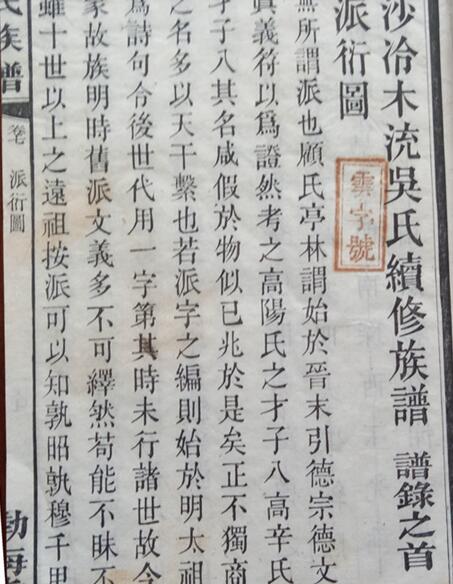 沙冾木流吳氏續修族譜 譜錄之首
派衍圖
雲字號
無所謂派也顧氏亭林謂始於晉末引德宗德文
眞義符以爲證然考之高陽氏之才子八高辛氏
才子八其名咸假於物似已兆於是矣正不獨商
之名多以天干繫也若派字之編則始於明太祖
爲詩句令後世代用一字第其時未行諸世故今
家故族明時舊派文義多不可繹然苟能不昧不
雖十世以上之遠祖按派可以知孰昭孰穆千里
氏族譜
卷七 派衍圖
勃海